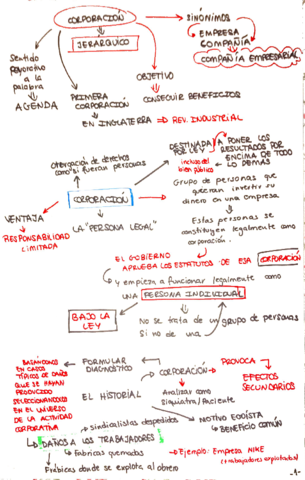 CORPORACIÓN
JERÁRQUICO
SINÓNIMOS
EMPRESA
COMPAÑÍA
COMPAÑÍA EMPRESARIAL
Sentido
peyorativo
a la
palabra
AGENDA
PRIMERA
CORPORACIÓN
OBJETIVO
CONSEGUIR BENEFICIOS
EN INGLATERRA ⇒ REV. INDUSTRIAL
DESTINADA
POR LEY
incluso del
bien público
A PONER LOS
RESULTADOS POR
ENCIMA DE TODO
LO DEMÁS
Otorgación de derechos
como si fueran personas
CORPORACIÓN
Grupo de personas que
quieran invertir su
dinero en una empresa
VENTAJA
RESPONSABILIDAD
LIMITADA
LA "PERSONA LEGAL"
Estas personas se
constituyen legalmente como
corporación.
EL GOBIERNO
APRUEBA LOS ESTATUTOS DE ESA CORPORACIÓN
y empieza a funcionar legalmente como
UNA PERSONA INDIVIDUAL
BAJO LA
LEY
No se trata de un grupo de personas
Si no de una
BASÁNDONOS
EN CASOS
TÍPICOS DE DAÑOS
QUE SE HAYAN
PRODUCIDO
SELECCIONÁNDONOS
EN EL UNIVERSO
DE LA ACTIVIDAD
CORPORATIVA
FORMULAR
DIAGNÓSTICO
CORPORACIÓN
PROVOCA
EFECTOS
SECUNDARIOS
EL HISTORIAL
Analizar como
Siquiatra/Paciente
MOTIVO EGOÍSTA
BENEFICIO COMÚN
sindicalistas despedidos
DAÑOS A LOS TRABAJADORES
Fábricas quemadas
Fábricas donde se explota al obrero
Ejemplo: Empresa NIKE
(trabajadores explotados)
-1-